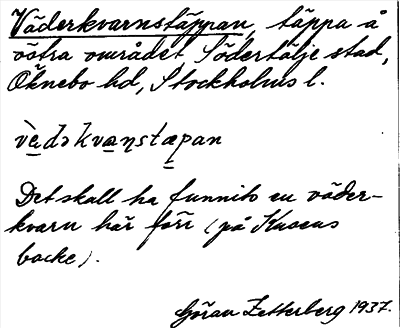 Väderkvarnstäppan, täppa å
östra området, Södertälje stad,
Öknebo hd, Stockholms l.
vè̱dəkvæ̱ŋstæ̱pan
Det skall ha funnits en väder-
kvarn här förr (på Kusens
backe).
Göran Zetterberg 1937.